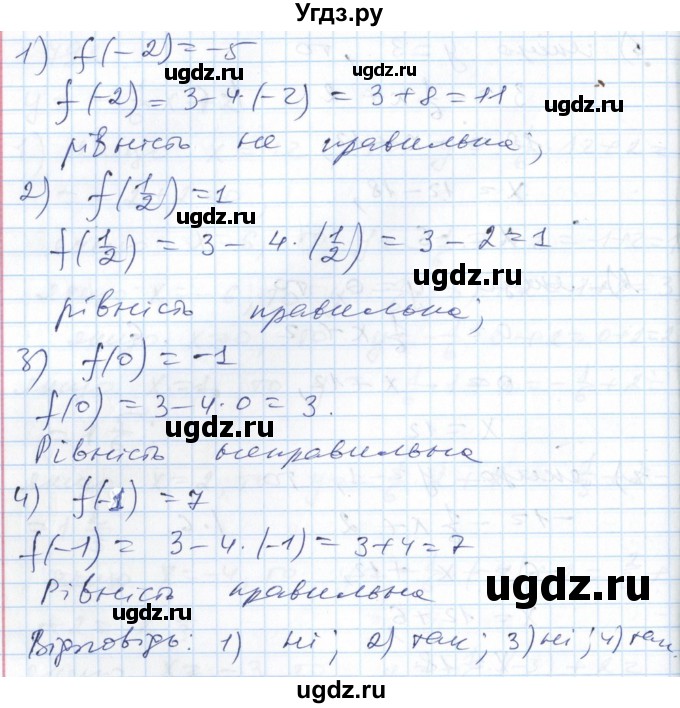 Угдз.ру
1) f(-2) = -5
ugdz.ru ugdz.ru
f(-2) = 3 - 4 · (-2) = 3 + 8 = 11
ugdz.ru
рівність не правильна;
2) f(1/2) = 1
ugdz.ru
f(1/2) = 3 - 4 · (1/2) = 3 - 2 = 1
ugdz.ru
рівність правильна;
ugdz.ru
3) f(0) = -1
f(0) = 3 - 4 · 0 = 3.
ugdz.ru
Рівність неправильна
4) f(-1) = 7
ugdz.ru
f(-1) = 3 - 4 · (-1) = 3 + 4 = 7
Рівність правильна
ugdz.ru ugdz.ru
Відповідь: 1) ні; 2) так; 3) ні; 4) так.
ugdz.ru